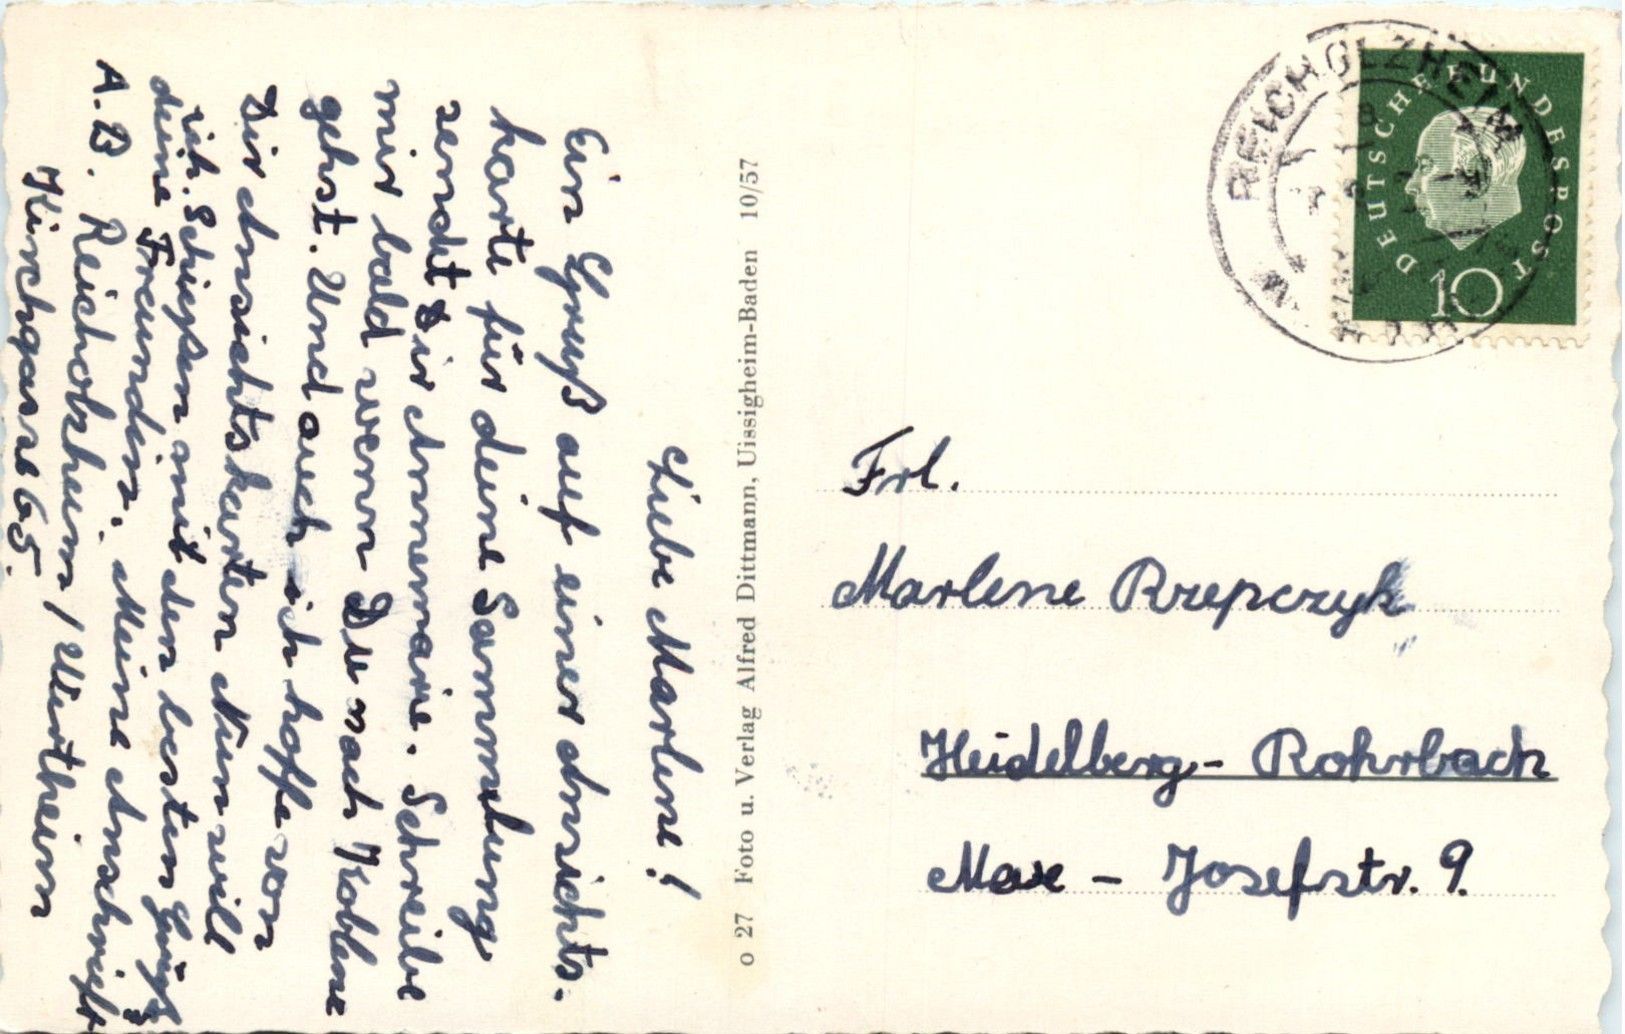 Liebe Marlene!
Ein Gruß auf einer Ansichts-
karte für deine Sammelung
sendet Dir Annemarie. Schreibe
mir bald wenn Du nach Koblenz
gehst. Und auch ich hoffe von
Dir Ansichtskarten Nun will
ich Schließen mit den besten Grüße
deine Freundin. Meine Anschrift
A.B. Reicholzheim / Wertheim
Kirchgasse 65.
o 27 Foto u. Verlag Alfred Dittmann, Uissigheim-Baden 10/57
REICHOLZHEIM
DEUTSCHE BUNDESPOST
10
Frl.
Marlene Rzepczyk
Heidelberg - Rohrbach
Max - Josefstr. 9.